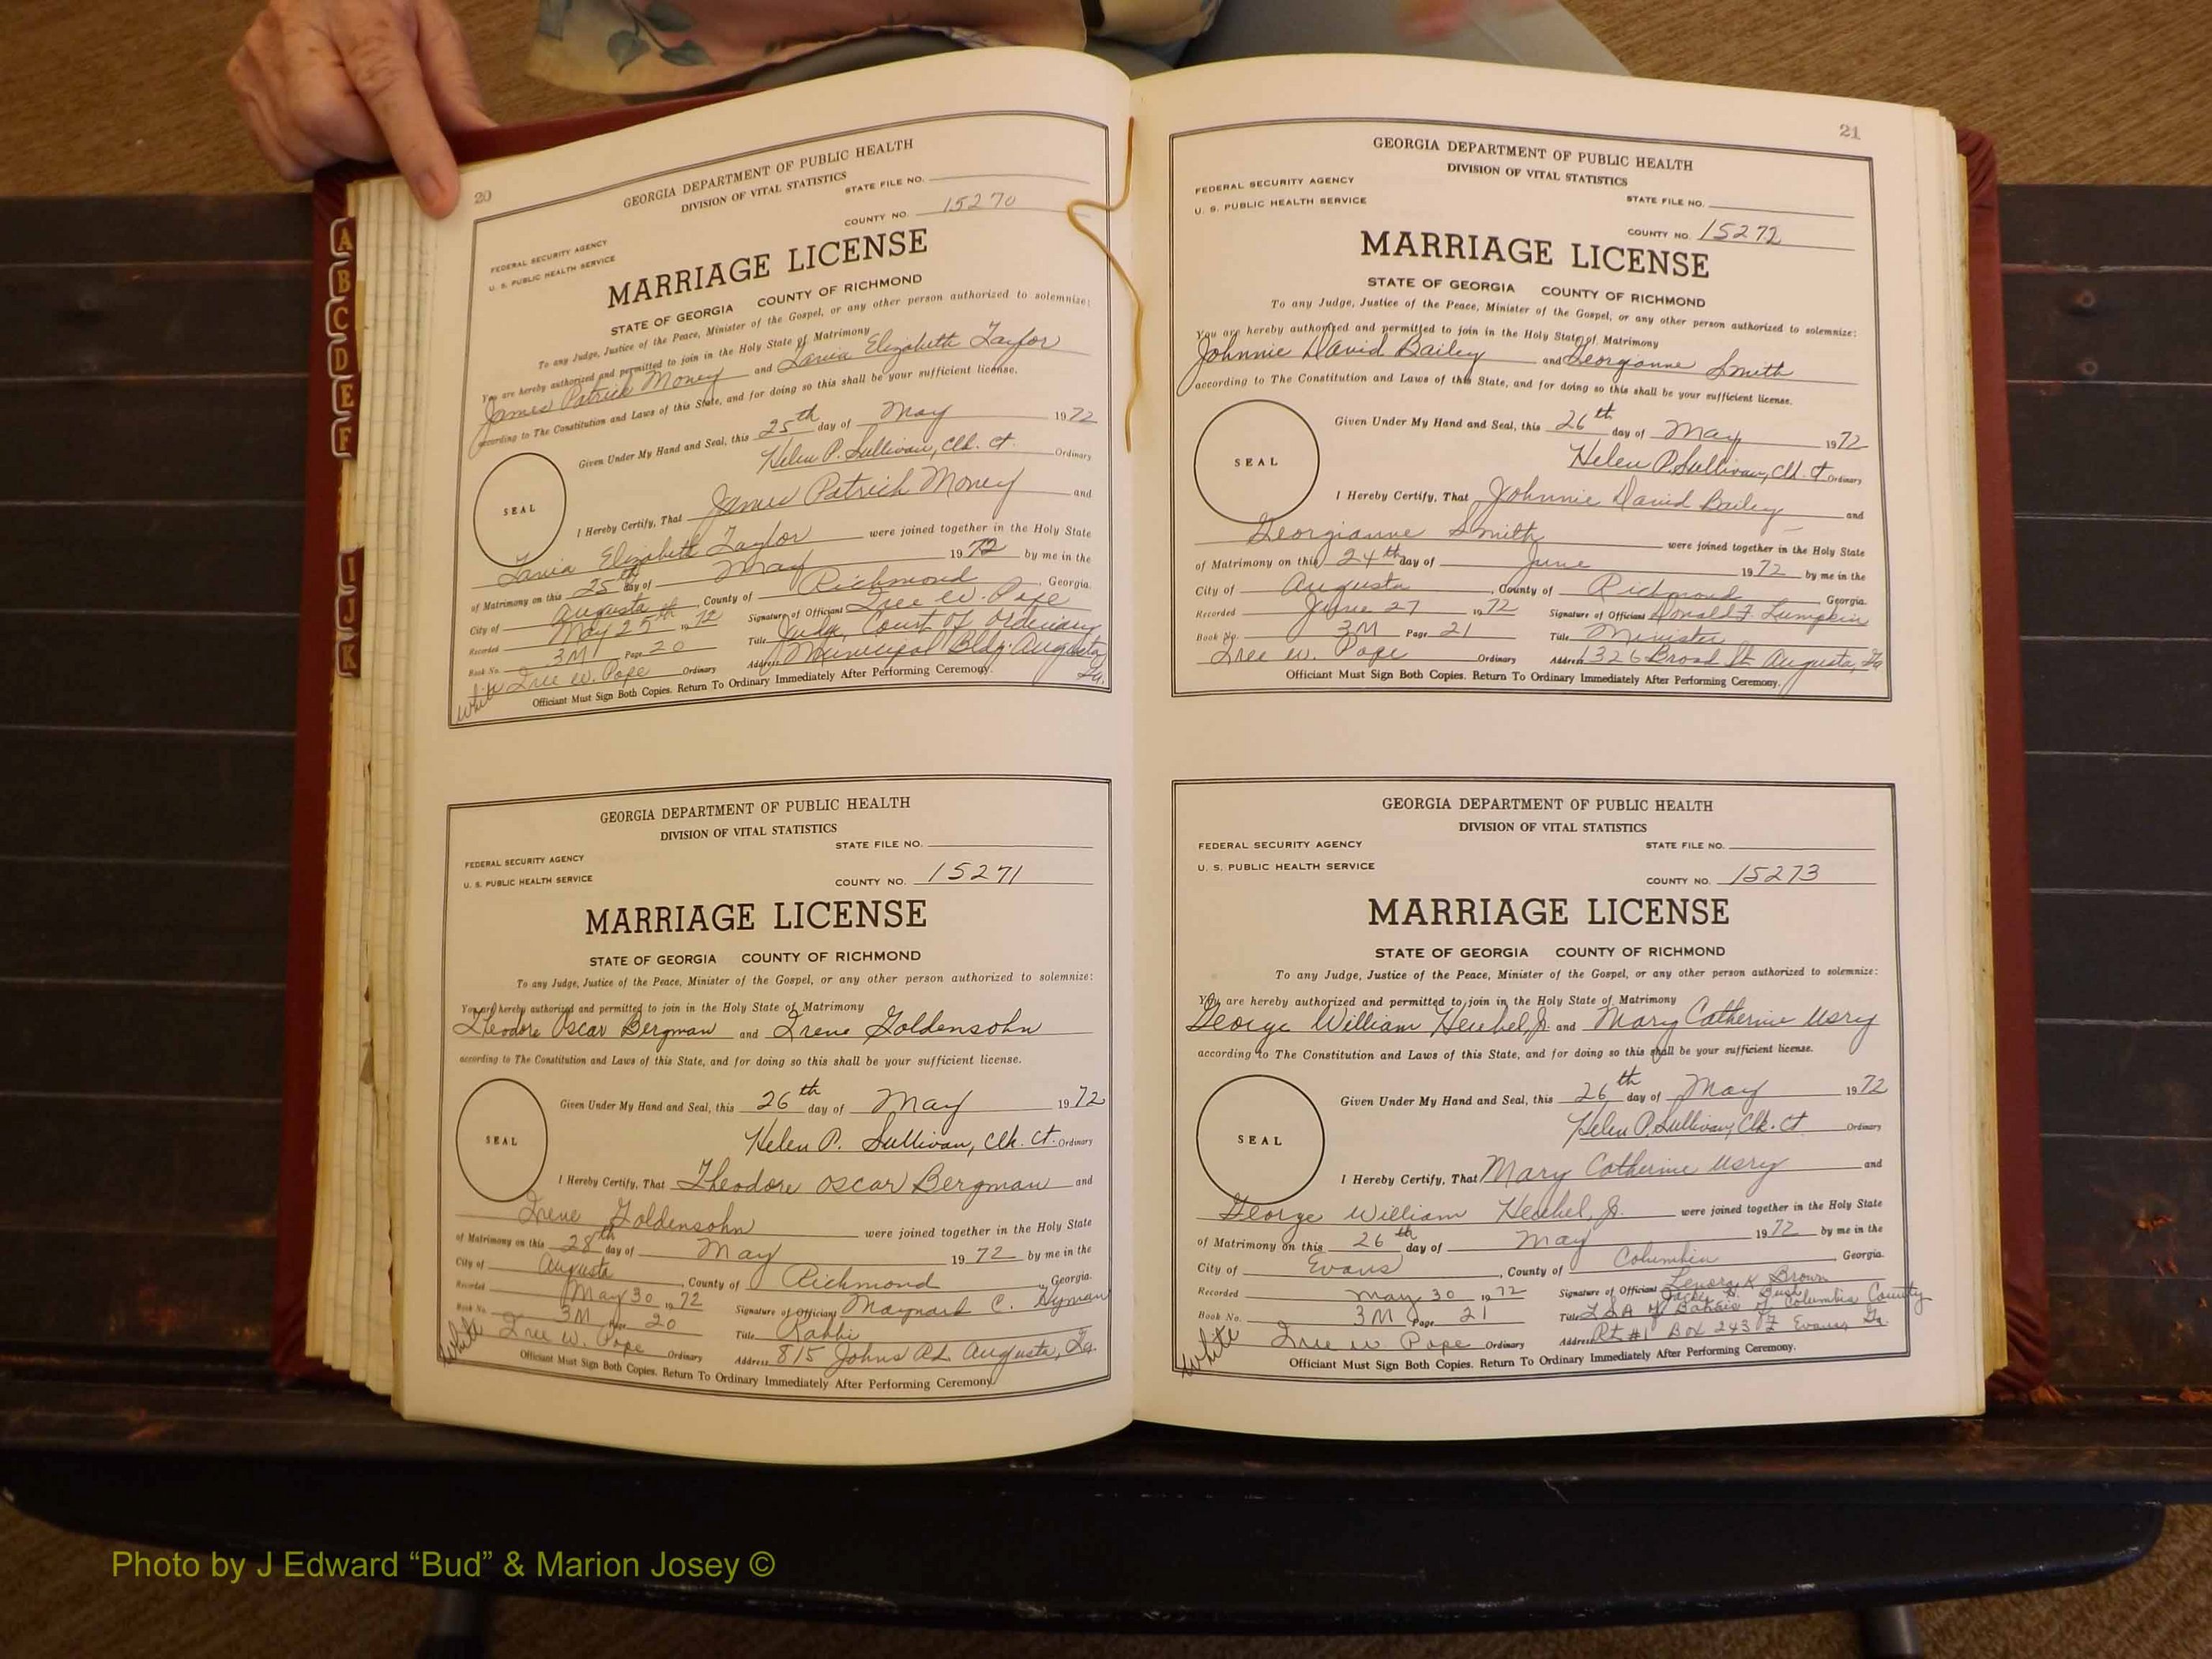 20
GEORGIA DEPARTMENT OF PUBLIC HEALTH
DIVISION OF VITAL STATISTICS
STATE FILE NO.
COUNTY NO. 15270
FEDERAL SECURITY AGENCY
U. S. PUBLIC HEALTH SERVICE
MARRIAGE LICENSE
STATE OF GEORGIA COUNTY OF RICHMOND
To any Judge, Justice of the Peace, Minister of the Gospel, or any other person authorized to solemnize:
You are hereby authorized and permitted to join in the Holy State of Matrimony
James Patrick Money and Tania Elizabeth Taylor
according to The Constitution and Laws of this State, and for doing so this shall be your sufficient license.
Given Under My Hand and Seal, this 25th day of May 1972
Helen P. Sullivan, Clk. Ct. Ordinary
SEAL
I Hereby Certify, That James Patrick Money and
Tania Elizabeth Taylor were joined together in the Holy State
of Matrimony on this 25th day of May 1972 by me in the
City of Augusta, County of Richmond, Georgia.
Recorded May 25th 1972 Signature of Officiant Iree W. Pope
Book No. 3M Page 20 Title Judge, Court of Ordinary
Iree W. Pope Ordinary Address Municipal Bldg. Augusta, Ga.
white
Officiant Must Sign Both Copies. Return To Ordinary Immediately After Performing Ceremony.
GEORGIA DEPARTMENT OF PUBLIC HEALTH
DIVISION OF VITAL STATISTICS
STATE FILE NO.
FEDERAL SECURITY AGENCY
U. S. PUBLIC HEALTH SERVICE
COUNTY NO. 15271
MARRIAGE LICENSE
STATE OF GEORGIA COUNTY OF RICHMOND
To any Judge, Justice of the Peace, Minister of the Gospel, or any other person authorized to solemnize:
You are hereby authorized and permitted to join in the Holy State of Matrimony
Theodore Oscar Bergman and Irene Goldensohn
according to The Constitution and Laws of this State, and for doing so this shall be your sufficient license.
Given Under My Hand and Seal, this 26th day of May 1972
Helen P. Sullivan, Clk. Ct. Ordinary
SEAL
I Hereby Certify, That Theodore Oscar Bergman and
Irene Goldensohn were joined together in the Holy State
of Matrimony on this 28th day of May 1972 by me in the
City of Augusta, County of Richmond, Georgia.
Recorded May 30 1972 Signature of Officiant Maynard C. Hyman
Book No. 3M Page 20 Title Rabbi
Iree W. Pope Ordinary Address 815 Johns Rd. Augusta, Ga.
white
Officiant Must Sign Both Copies. Return To Ordinary Immediately After Performing Ceremony.
21
GEORGIA DEPARTMENT OF PUBLIC HEALTH
DIVISION OF VITAL STATISTICS
FEDERAL SECURITY AGENCY
U. S. PUBLIC HEALTH SERVICE
STATE FILE NO.
COUNTY NO. 15272
MARRIAGE LICENSE
STATE OF GEORGIA COUNTY OF RICHMOND
To any Judge, Justice of the Peace, Minister of the Gospel, or any other person authorized to solemnize:
You are hereby authorized and permitted to join in the Holy State of Matrimony
Johnnie David Bailey and Georgianne Smith
according to The Constitution and Laws of this State, and for doing so this shall be your sufficient license.
Given Under My Hand and Seal, this 26th day of May 1972
Helen P. Sullivan, Clk. Ct. Ordinary
SEAL
I Hereby Certify, That Johnnie David Bailey and
Georgianne Smith were joined together in the Holy State
of Matrimony on this 24th day of June 1972 by me in the
City of Augusta, County of Richmond, Georgia.
Recorded June 27 1972 Signature of Officiant Donald F. Lumpkin
Book No. 3M Page 21 Title Minister
Iree W. Pope Ordinary Address 1326 Broad St. Augusta, Ga
Officiant Must Sign Both Copies. Return To Ordinary Immediately After Performing Ceremony.
GEORGIA DEPARTMENT OF PUBLIC HEALTH
DIVISION OF VITAL STATISTICS
FEDERAL SECURITY AGENCY
STATE FILE NO.
U. S. PUBLIC HEALTH SERVICE
COUNTY NO. 15273
MARRIAGE LICENSE
STATE OF GEORGIA COUNTY OF RICHMOND
To any Judge, Justice of the Peace, Minister of the Gospel, or any other person authorized to solemnize:
You are hereby authorized and permitted to join in the Holy State of Matrimony
George William Heuhel, Jr. and Mary Catherine Usry
according to The Constitution and Laws of this State, and for doing so this shall be your sufficient license.
Given Under My Hand and Seal, this 26th day of May 1972
Helen P. Sullivan, Clk. Ct. Ordinary
SEAL
I Hereby Certify, That Mary Catherine Usry and
George William Heuhel, Jr. were joined together in the Holy State
of Matrimony on this 26th day of May 1972 by me in the
City of Evans, County of Columbia, Georgia.
Recorded May 30 1972 Signature of Officiant Lenora K Brown
Book No. 3M Page 21 Title Columbia County
Iree W. Pope Ordinary Address Rt #1 Box 243 Evans, Ga.
white
Officiant Must Sign Both Copies. Return To Ordinary Immediately After Performing Ceremony.
A
B
C
D
E
F
I
J
K
Photo by J Edward “Bud” & Marion Josey ©